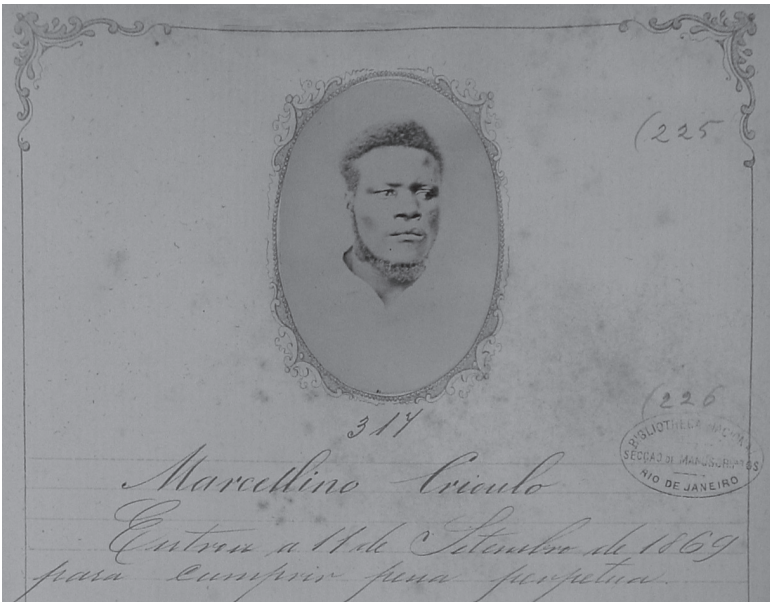 (225
317
(226
BIBLIOTHECA NACIONAL
SECÇÃO DE MANUSCRIPTOS
RIO DE JANEIRO
Marcellino Crioulo
Entrou a 11 de Setembro de 1869
para cumprir pena perpetua.